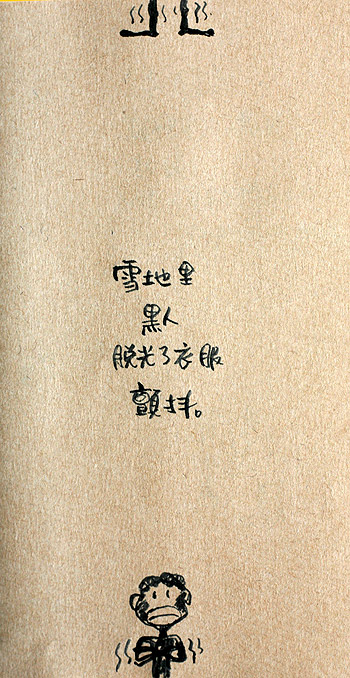 雪地里
黑人
脱光了衣服
颤抖。